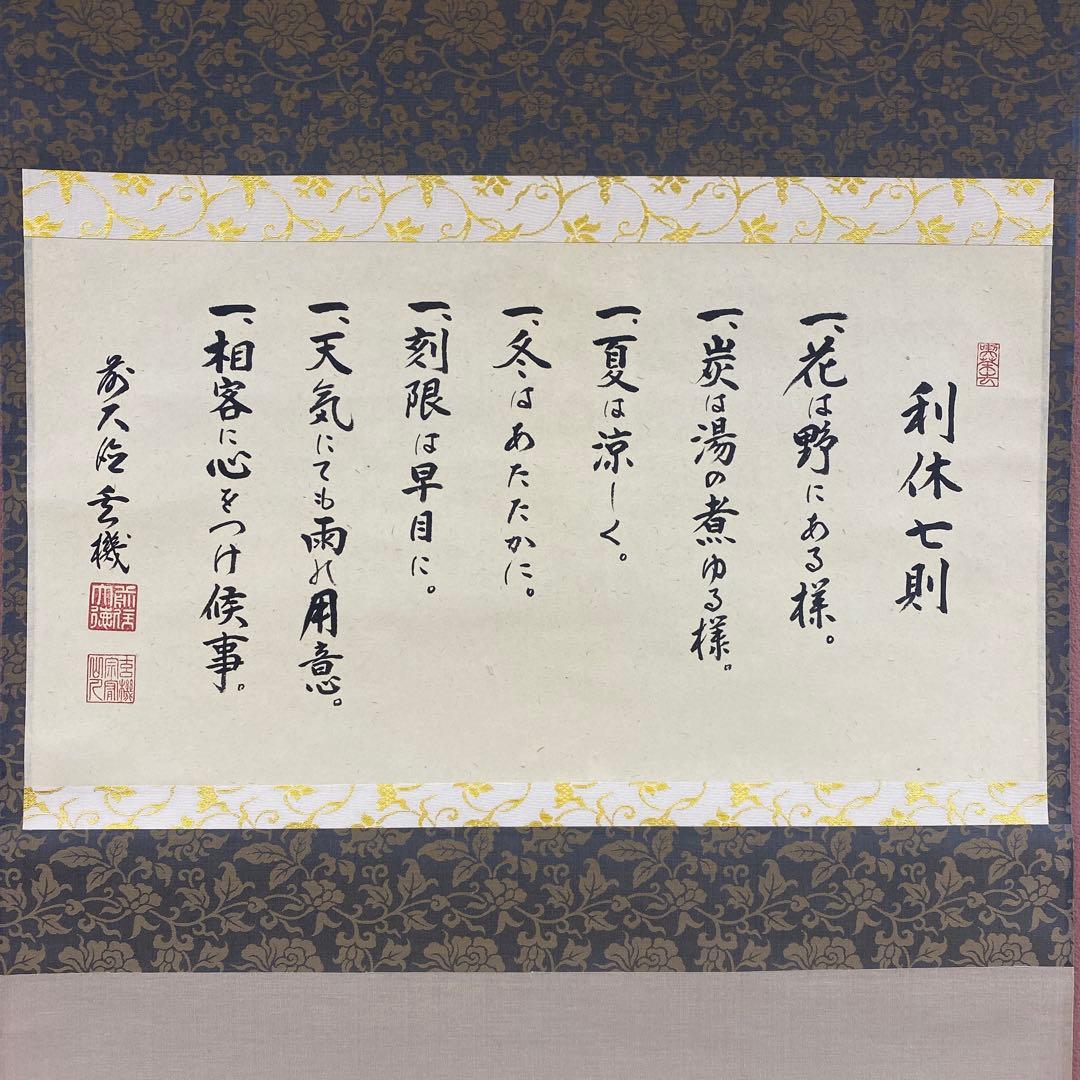 喫茶去
利休七則
一、花は野にある様。
一、炭は湯の煮ゆる様。
一、夏は涼しく。
一、冬はあたたかに。
一、刻限は早目に。
一、天気にても雨の用意。
一、相客に心をつけ候事。
前大徳玄機